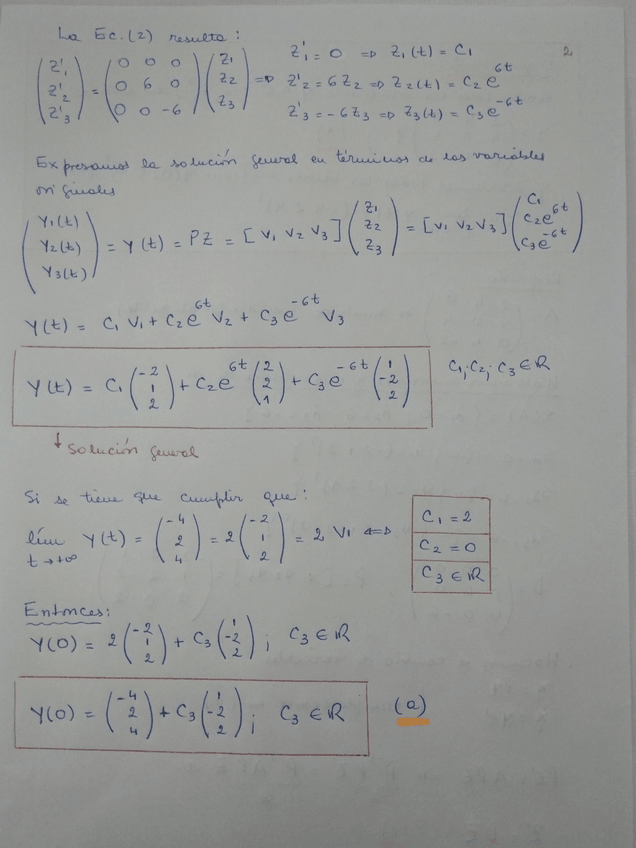 La Ec.(2) resulta:
2
(z'1 z'2 z'3) = (0 0 0; 0 6 0; 0 0 -6) (z1 z2 z3) ⇒
z'1 = 0 ⇒ z1(t) = C1
z'2 = 6z2 ⇒ z2(t) = C2 e^6t
z'3 = -6z3 ⇒ z3(t) = C3 e^-6t
Expresamos la solución general en términos de las variables
originales
(Y1(t) Y2(t) Y3(t)) = Y(t) = PZ = [V1 V2 V3] (z1 z2 z3) = [V1 V2 V3] (C1 C2e^6t C3e^-6t)
Y(t) = C1 V1 + C2 e^6t V2 + C3 e^-6t V3
Y(t) = C1 (-2 1 2) + C2 e^6t (2 2 1) + C3 e^-6t (1 -2 2)
C1; C2; C3 ∈ ℝ
↓ Solución general
Si se tiene que cumplir que:
lím t→+∞ Y(t) = (-4 2 4) = 2 (-2 1 2) = 2 V1 ⇔
C1 = 2
C2 = 0
C3 ∈ ℝ
Entonces:
Y(0) = 2 (-2 1 2) + C3 (1 -2 2); C3 ∈ ℝ
Y(0) = (-4 2 4) + C3 (1 -2 2); C3 ∈ ℝ
(a)